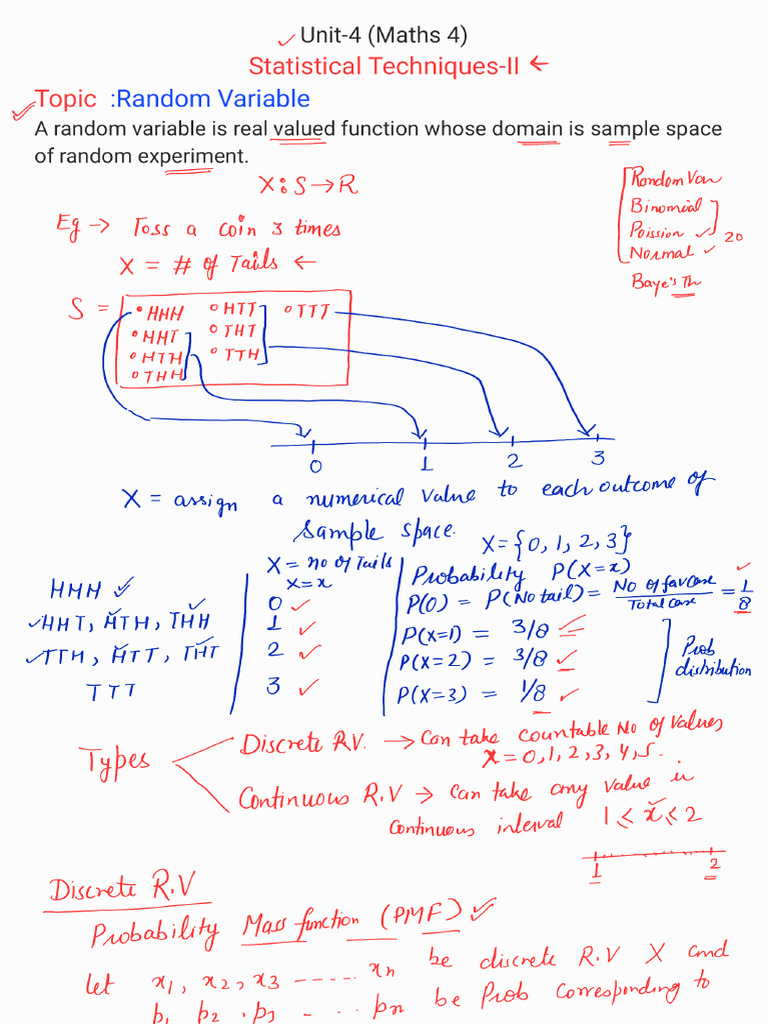 Unit-4 (Maths 4)
Statistical Techniques-II ←
Topic :Random Variable
A random variable is real valued function whose domain is sample space
of random experiment.
X: S→R
Random Var
Binomial
Poission
Normal
20
Baye's Th
Eg → Toss a coin 3 times
X = # of Tails ←
S =
HHH HTT TTT
HHT THT
HTH TTH
THH
0 1 2 3
X = assign a numerical value to each outcome of
sample space.
X={0,1,2,3}
X = no of Tails
X=x
Probability P(X=x)
HHH ✓ 0 ✓ P(0) = P(No tail) = No of fav case / Total case = 1/8
HHT, HTH, THH 1 ✓ P(X=1) = 3/8
TTH, HTT, THT 2 ✓ P(X=2) = 3/8
TTT 3 ✓ P(X=3) = 1/8
Prob
distribution
Types
Discrete RV. → Can take countable No of Values
X=0,1,2,3,4,5.
Continuous R.V → Can take any value in
Continuous interval 1 < x < 2
1 2
Discrete R.V
Probability Mass function (PMF) ✓
let x1, x2, x3 ----... xn be discrete R.V X and
p1 p2 . p3 - ... pn be Prob corresponding to